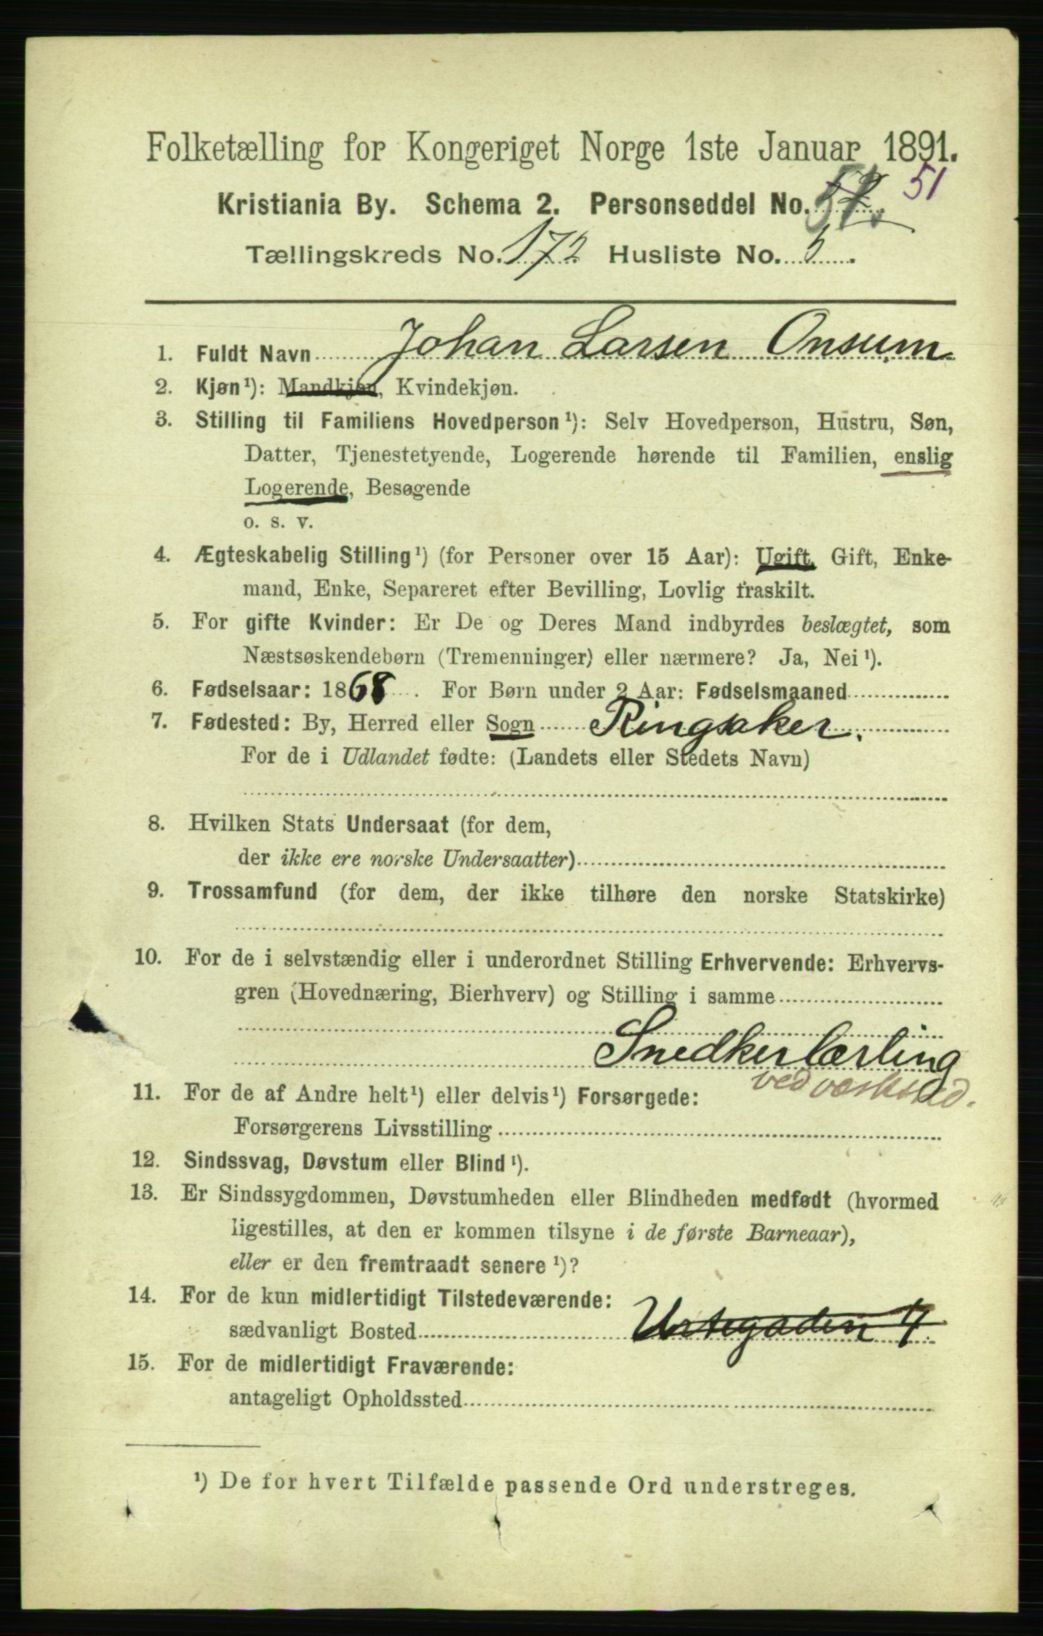 Folketælling for Kongeriget Norge 1ste Januar 1891.
Kristiania By. Schema 2. Personseddel No. 51. 51
Tællingskreds No. 172 Husliste No. 5.
1. Fuldt Navn Johan Larsen Onsum
2. Kjøn¹): Mandkjøn, Kvindekjøn.
3. Stilling til Familiens Hovedperson¹): Selv Hovedperson, Hustru, Søn,
Datter, Tjenestetyende, Logerende hørende til Familien, enslig
Logerende, Besøgende
o. s. v.
4. Ægteskabelig Stilling¹) (for Personer over 15 Aar): Ugift, Gift, Enke-
mand, Enke, Separeret efter Bevilling, Lovlig fraskilt.
5. For gifte Kvinder: Er De og Deres Mand indbyrdes beslægtet, som
Næstsøskendebørn (Tremenninger) eller nærmere? Ja, Nei¹).
6. Fødselsaar: 1868. For Børn under 2 Aar: Fødselsmaaned
7. Fødested: By, Herred eller Sogn Ringsaker.
For de i Udlandet fødte: (Landets eller Stedets Navn)
8. Hvilken Stats Undersaat (for dem,
der ikke ere norske Undersaatter)
9. Trossamfund (for dem, der ikke tilhøre den norske Statskirke)
10. For de i selvstændig eller i underordnet Stilling Erhvervende: Erhvervs-
gren (Hovednæring, Bierhverv) og Stilling i samme
Snedkerlærling
ved værksted.
11. For de af Andre helt¹) eller delvis¹) Forsørgede:
Forsørgerens Livsstilling
12. Sindssvag, Døvstum eller Blind¹).
13. Er Sindssygdommen, Døvstumheden eller Blindheden medfødt (hvormed
ligestilles, at den er kommen tilsyne i de første Barneaar),
eller er den fremtraadt senere¹)?
14. For de kun midlertidigt Tilstedeværende:
sædvanligt Bosted Urtegaden 7.
15. For de midlertidigt Fraværende:
antageligt Opholdssted
¹) De for hvert Tilfælde passende Ord understreges.